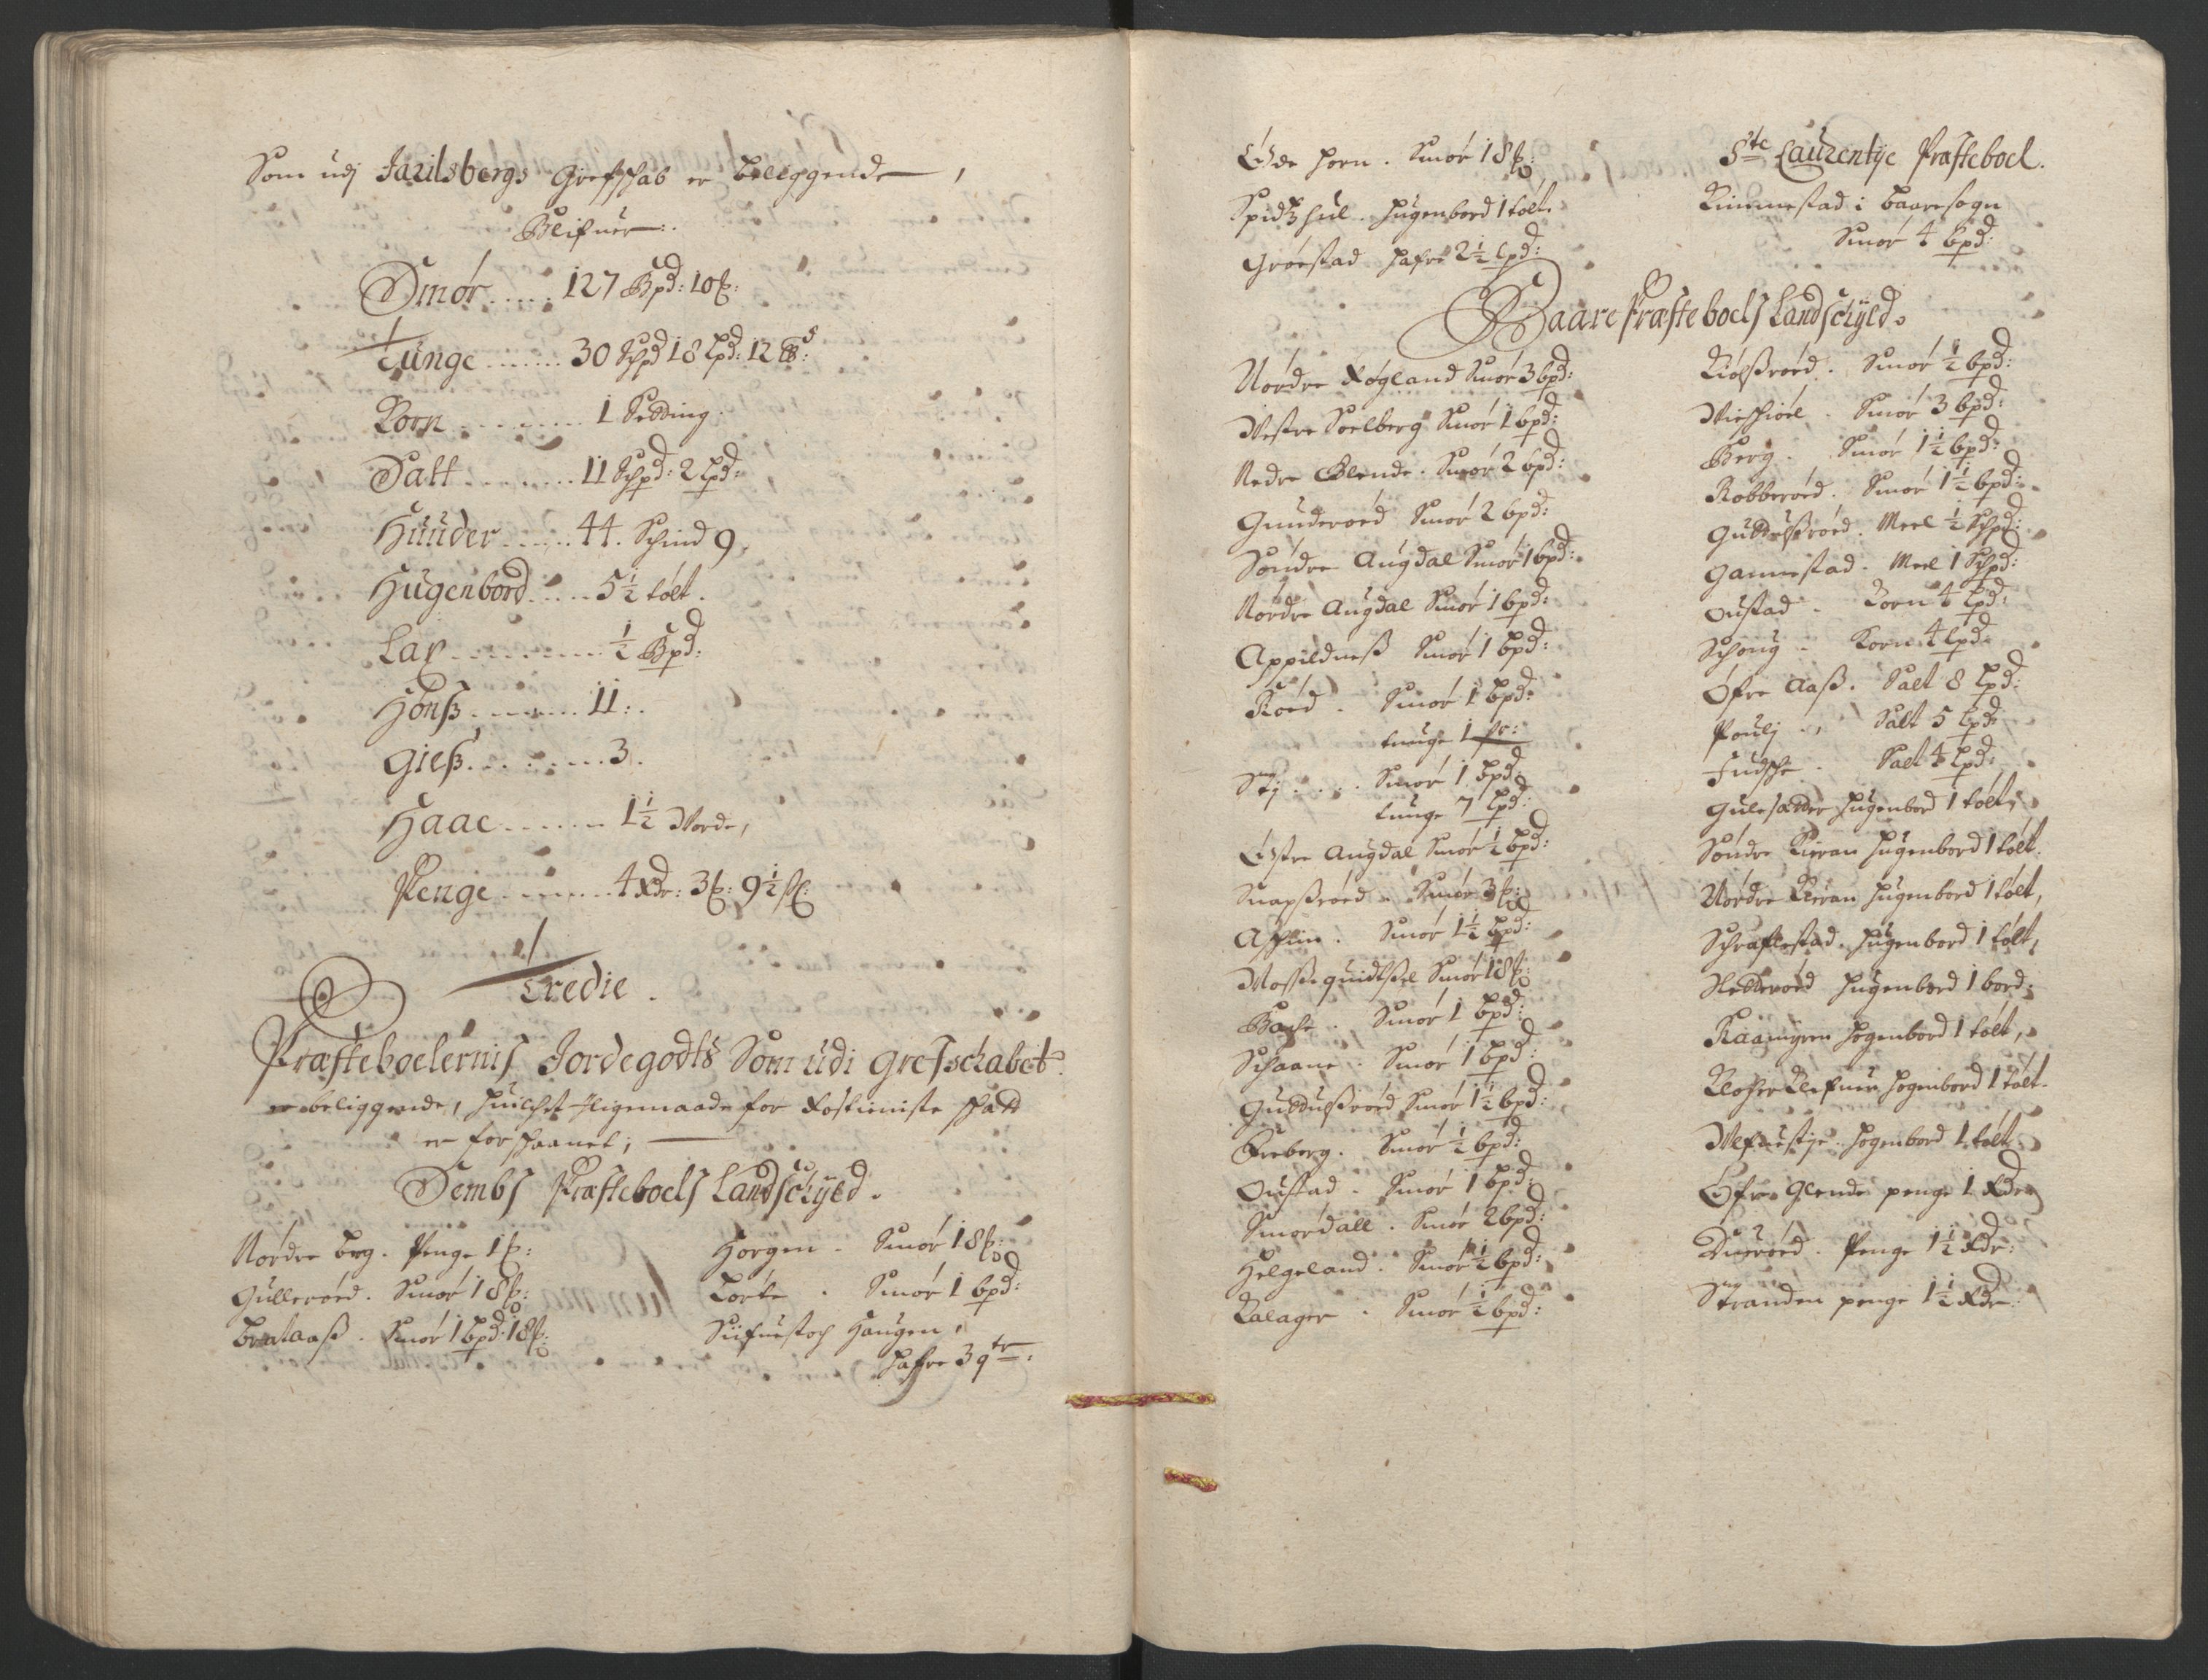 Som udj Jarilsbergs Grefschab er beliggende,
Blifuer:
Smør ..... 127 Bpd: 10 ℔:
Tunge ....... 30 Schpd 18 Lpd: 12
Korn ......... 1 Sedding.
Salt ........ 11 Schpd: 2 Lpd:
Huuder ..... 44. Schind 9.
Hugenbord ..... 5½ tølt.
Lax ......... ½ Bpd:
Hønß ....... 11:
Gieß ....... 3.
Haac ...... 1½ Worde,
Penge ....... 4 Rdr: 3 : 9½ :
Tredie.
Præsteboelernis Jordegodtz Som udi Grefschabet
er beliggende, huilchet ligemaade for Rostieniste schatt
er forschaanet;
Sembs Præsteboels Landschyld.
Nordre berg. Penge 1 :
Gullerøed. Smør 18 :
Brataaß. Smør 1 bpd: 18 :
Horgen. Smør 18 :
Torte. Smør 1 bpd:
Siifuestoch Haugen,
hafre 3 qtr:
Eyde horn. Smør 18 :
Spidtzhul. Hugenbord 1 tølt.
Grøestad hafre 2½ Lpd:
Ste Laurentye Præsteboel.
Rimmestad i baare sogn
Smør 4 bpd:
Baare Præsteboels Landschyld.
Nordre Røgland Smør 3 bpd:
Westre Soelberg Smør 1 bpd:
Nedre Glende. Smør 2 bpd:
Gunderoed Smør 2 bpd:
Søndre Augdal Smør 1 bpd:
Nordre Augdal Smør 1 bpd:
Appildneß Smør 1 bpd:
Røed. Smør 1 bpd:
tunge 1
Stj .... Smør 1 bpd:
tunge 7 Lpd:
Østre Augdal Smør ½ bpd:
Snapßrøed. Smør 3 :
Aschim. Smør 1½ bpd:
Mosse quidtßel Smør 18 :
Bache. Smør 1 bpd:
Schaane. Smør 1 bpd:
Guddulßrøed Smør 1½ bpd:
Freberg. Smør ½ bpd:
Oustad. Smør 1 bpd:
Smørdall. Smør 2 bpd:
Helgeland. Smør ½ bpd:
Kalager. Smør ½ bpd:
Kiølßrøed. Smør ½ bpd:
Wieschiøl. Smør 3 bpd:
Berg. Smør 1½ bpd:
Robberøed. Smør 1½ bpd:
Guddelßrøed. Meel ½ Schpd:
Gannestad. Meel 1 Schpd:
Oustad. Korn 4 Lpd:
Schoug. Korn 4 Lpd:
Øfre Aaß. Salt 8 Lpd:
Poulj. Salt 5 Lpd:
Fudsche. Salt 4 Lpd:
Gulesetter Hugenbord 1 tølt;
Søndre Kieran Hugenbord 1 tølt.
Nordre Kieran Hugenbord 1 tølt,
Schraflestad. Hugenbord 1 tølt,
Hedderøed Hugenbord 1 bord;
Raamyren Hogenbord 1 tølt,
Klocher Klefuen Hogenbord 1 tølt.
Ulfuestye. Hogenbord 1 tølt.
Øfre Glende penge 1 Rdr
Duerøed. Penge 1½ Rdr:
Stranden penge 1½ Rdr: